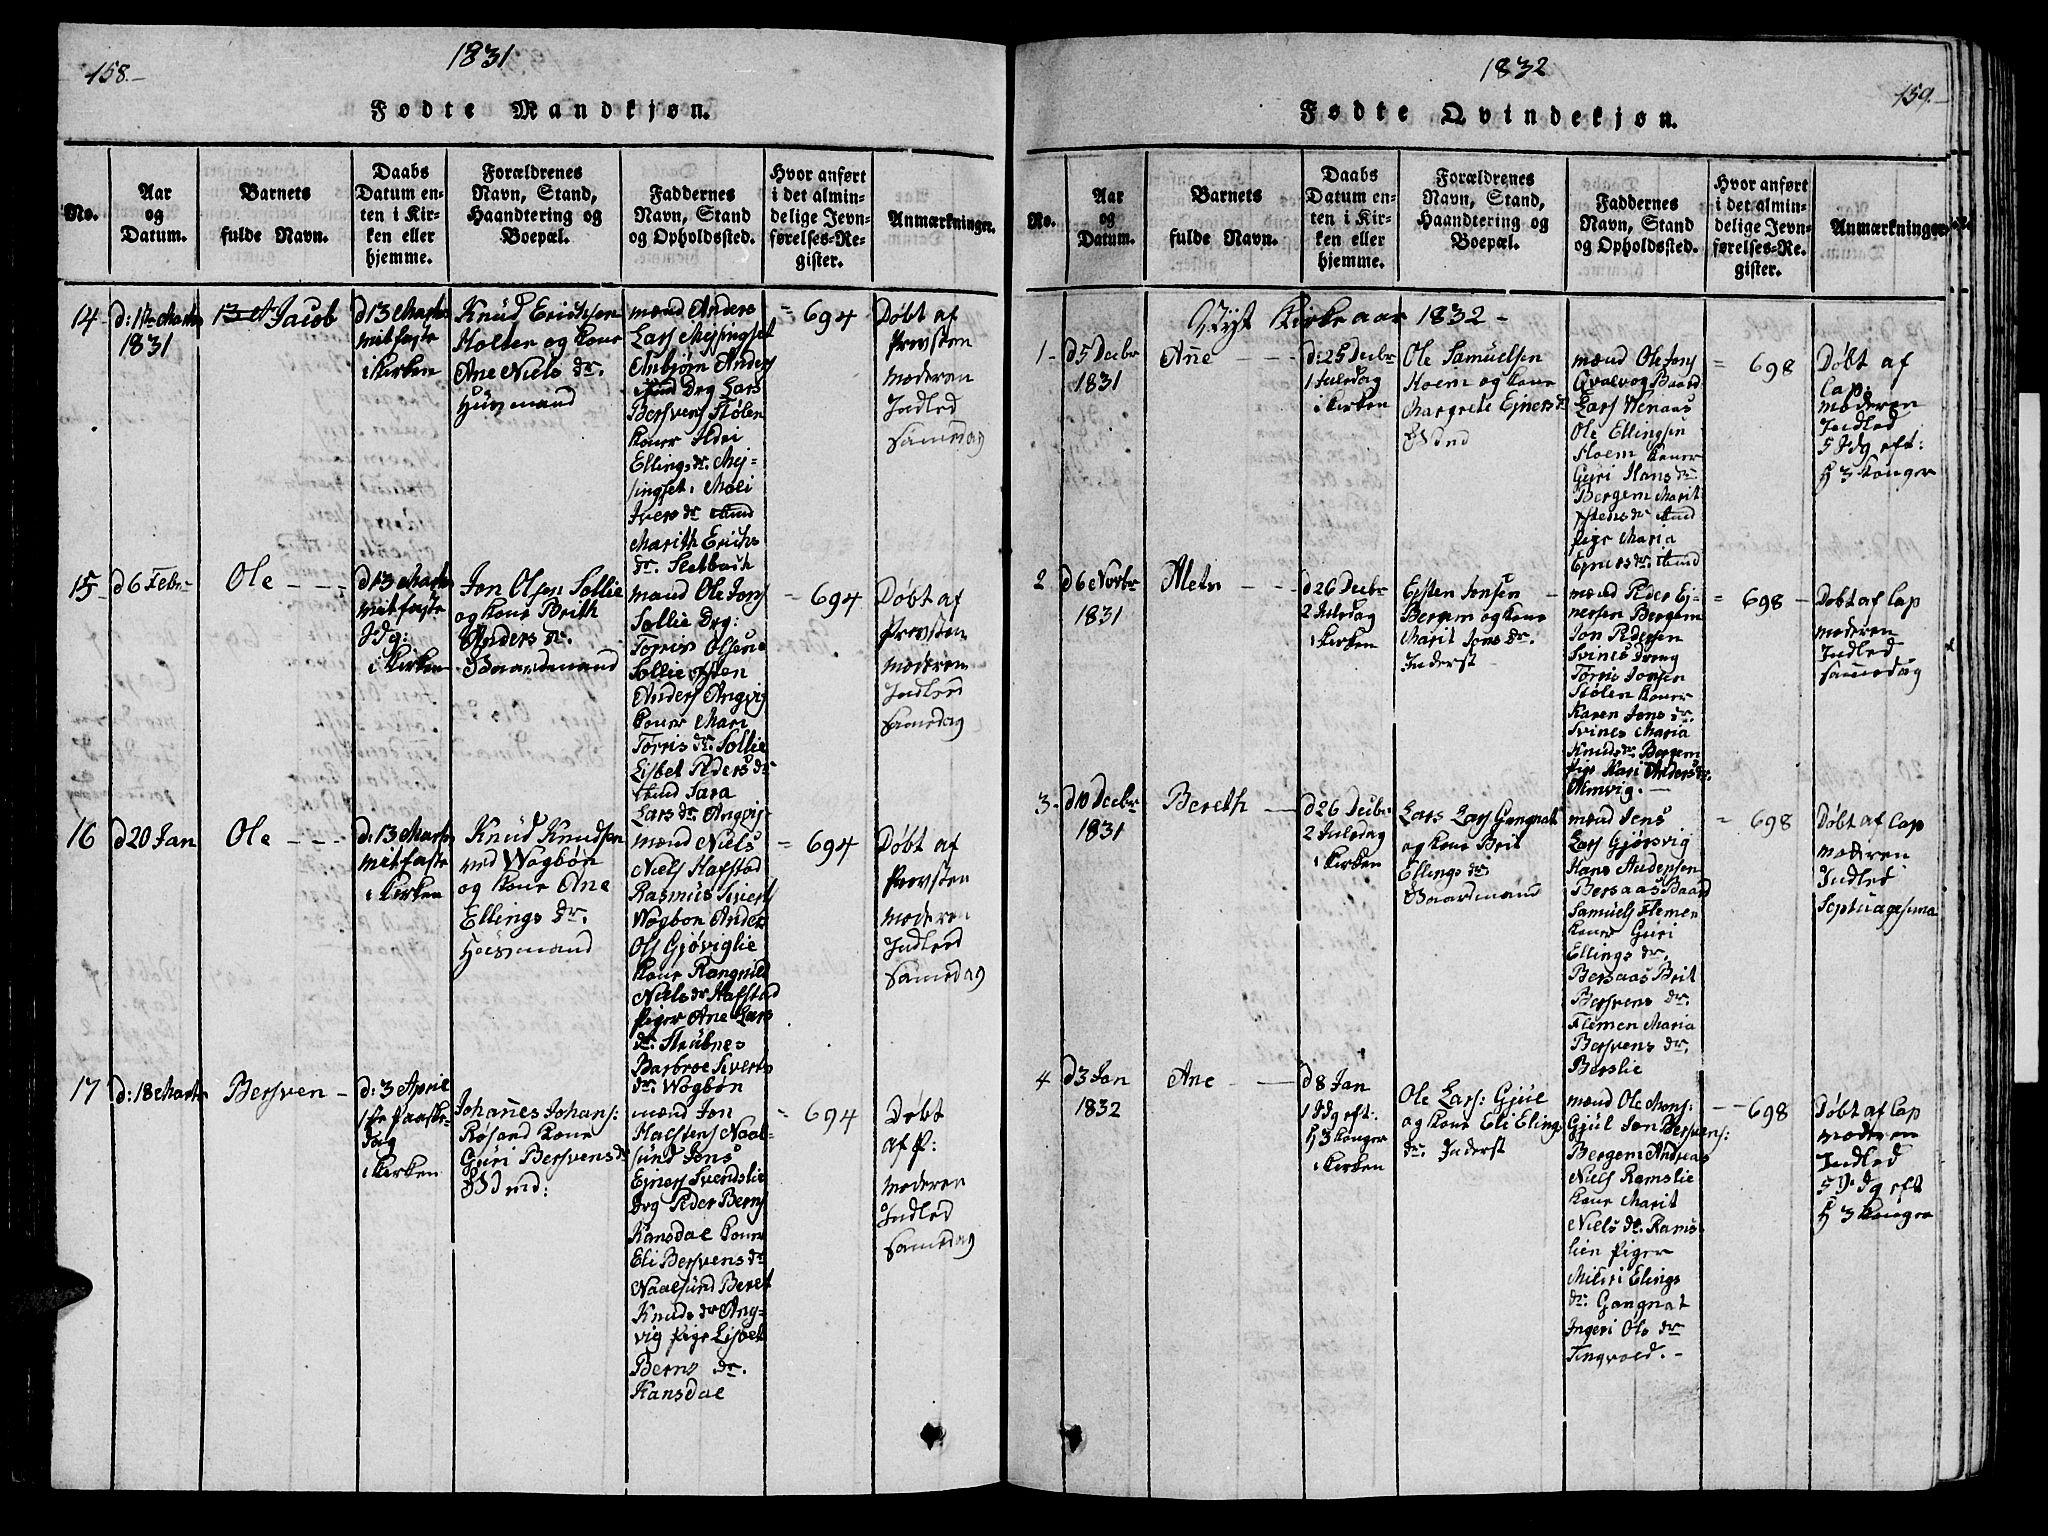 158.
1831
Fødte Mandkjøn.
No.
Aar
og
Datum.
Barnets
fulde Navn.
Daabs
Datum en-
ten i Kir-
ken eller
hjemme.
Forældrenes
Navn, Stand,
Haandtering og
Boepæl.
Faddernes
Navn, Stand
og Opholdssted.
Hvor anført
i det almin-
delige Jevn-
førelses-Re-
gister.
Anmærkninger.
14
1831
Jacob
d 13 Marts
mitfaste
i Kirken
Knud Erichsen
Holten og Kone
Ane Niels dr.
Huusmand
mænd Anders
Lars Mejsingset
Anbjørn Anders
Drg Lars
Bersvens Stølen
Koner Ildri
Ellings dr. Mej-
singset. Mali
Ivers dr
Marith Erichs
dr. Sletbach
= 694
Døbt af
Provsten
moderen
Indled
samedag
15
d 6 Febr
Ole
d 13 Marts
mitfaste
Sdg:
i Kirken
Jon Olsen Sollie
og Kone Brith
Anders dr.
Gaardmand
mænd Ole Jons
Sollie Drg:
Torris Olsen
Sollie
Anders Angvig
Koner Mari
Torris dr. Sollie
Lisbet Peders dr
Sara
Lars dr. Angvig
= 694
Døbt af
Provsten
moderen
Indled
samedag
16
d 20 Jan
Ole
d: 13 Marts
mitfaste
i Kirken
Knud Knudsen
ved Wogbøn
og Kone Ane
Ellings dr.
Huusmand
mænd Niels
Niels Hafstad
Rasmus Sivert
Wogbøn Anders
Ols Gjøviglie
Kone Rangnild
Niels dr Hafstad
Piger Ane Lars
dr. Strübnes
Barbroe Siverts
dr. Wogbøn
= 694
Døbt af
Provsten
moderen
Indled
samedag
17
d: 18 Marts
Bersven
d: 3 April
1ste Paaske-
dag
i Kirken
Johanes Johans:
Røsand Kone
Guri Bersvens dr
Gdmd:
mænd Jon
Halstens Naal-
sund Jons
Ejners Svendslie
Drg Peder Bernt
Kansdal Koner
Eli Bersvens dr
Naalsund Beret
Knuds dr Ang-
vig Pige Lisbet
Bernt dr.
Kansdal
= 694
Døbt
af P:
moderen
Indled
samedag
1832
159.
Fødte Qvindekjøn.
No.
Aar
og
Datum.
Barnets
fulde Navn.
Daabs
Datum en-
ten i Kir-
ken eller
hjemme.
Forældrenes
Navn, Stand,
Haandtering og
Boepæl.
Faddernes
Navn, Stand
og Opholdssted.
Hvor anført
i det almin-
delige Jevn-
førelses-Re-
gister.
Anmærkninger.
Nyt Kirkeaar 1832 -
1
d 5 Decbr
1831
Ane
d: 25 Decbr
1 Juledag
i Kirken
Ole Samuelsen
Hoem og Kone
Margrete Ejners dr
Gdmd
mænd Ole Jons
Qvalvog Baard
Lars Wenaas
Ole Ellingsen
Hoem Koner
Guri Hans dr
Bergem Marit
pige Maria
Ejners dr.
= 698
Døbt af
Cap:
moderen
Indled
5 Sdg eft:
H 3 Konger
2
d 6 Novbr
1831
Alet
d 26 Decbr
2 Juledag
i Kirken
Ejsten Jonsen
Bergem og Kone
Marit Jons dr.
Inderst
mænd Peder Ej-
nersen Bergem
Jon Pedersen
Svines Dreng
Torris Jonsen
Stølen Koner
Karen Jons dr.
Svines Maria
Knuds dr. Bergem
Pige Kari Anders dr.
Almvig.
= 698
Døbt af Cap
moderen
Indled
samedag
3
d 10 Decbr
1831
Bereth
d 26 Decbr
2 Juledag
i Kirken
Lars Lars Gangnat
og Kone Brit
Ellings dr.
Gaardmand
mænd Jens
Lars Gjørsvig
Hans Andersen
Bersaas Baard
Samuels Flemen
Koner Guri
Ellings dr.
Bersaas Brit
Bersvens dr.
Flemen Maria
Bersvens dr.
Berslie
= 698
Døbt af Cap
moderen
Indled
Septuagesima
4
d 3 Jan
1832
Ane
d 8 Jan
1 Sdg eft:
H 3 Konger
i Kirken
Ole Lars: Gjül
og Kone Eli Eling
dr. Inderst
mænd Ole Mons:
Gjül Jon Bersvens:
Bergem Andreas
Niels Ramslie
Kone Marit
Niels dr. Rams-
lien Piger
Elings
dr. Gangnat
Ingeri Ols dr
Tingvold. -
698
Døbt af Cap
moderen
Indled
5 S.dg eft
H 3 Konger